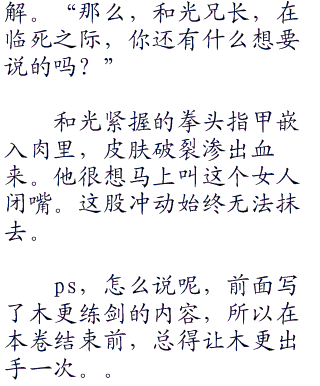 解。“那么，和光兄长，在
临死之际，你还有什么想要
说的吗？”
和光紧握的拳头指甲嵌
入肉里，皮肤破裂渗出血
来。他很想马上叫这个女人
闭嘴。这股冲动始终无法抹
去。
ps，怎么说呢，前面写
了木更练剑的内容，所以在
本卷结束前，总得让木更出
手一次。。